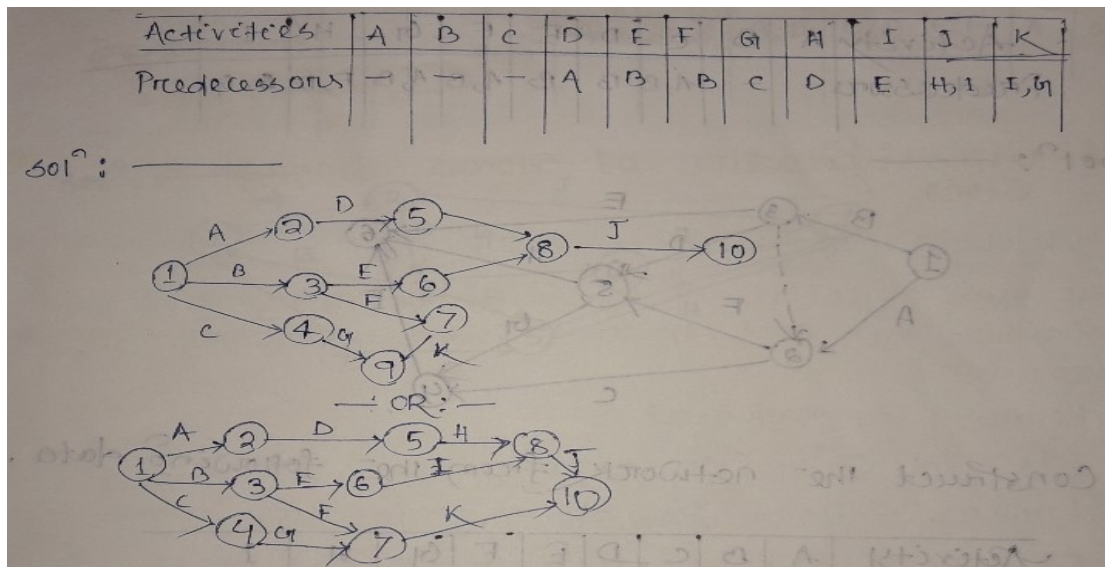 Activities A B C D E F G H I J K
Predecessors — — — A B B C D E H,I I,G
Sol^n :
A D 5 J
2 8 10
1 B 3 E 6
F 7
C 4 G K
9
— : OR : —
A 2 D 5 H 8 J
1 B 3 E 6 I 10
C F K
4 G 7